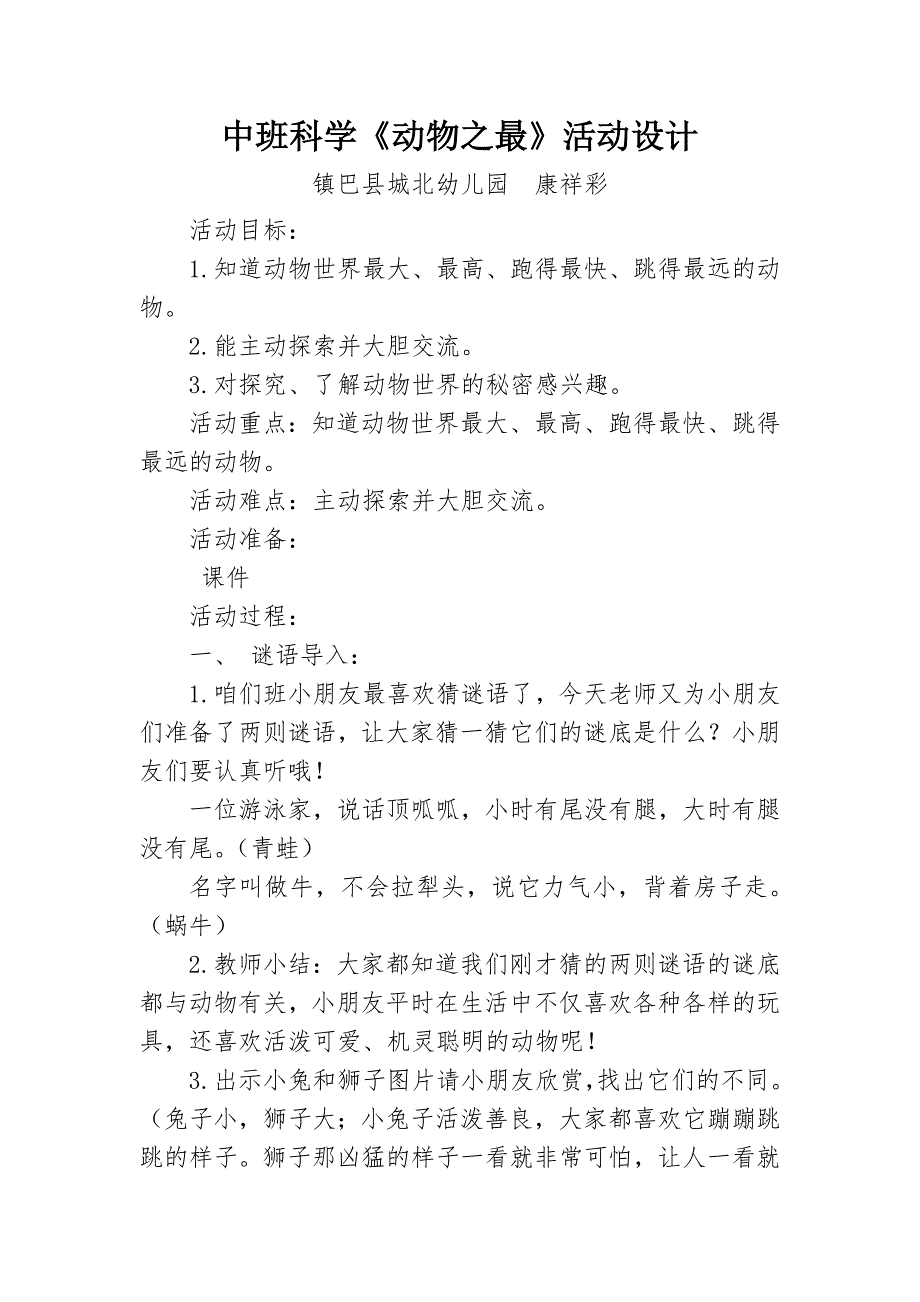 中班科学《动物之最》活动设计
镇巴县城北幼儿园 康祥彩
活动目标：
1.知道动物世界最大、最高、跑得最快、跳得最远的动
物。
2.能主动探索并大胆交流。
3.对探究、了解动物世界的秘密感兴趣。
活动重点：知道动物世界最大、最高、跑得最快、跳得
最远的动物。
活动难点：主动探索并大胆交流。
活动准备：
课件
活动过程：
一、 谜语导入：
1.咱们班小朋友最喜欢猜谜语了，今天老师又为小朋友
们准备了两则谜语，让大家猜一猜它们的谜底是什么？小朋
友们要认真听哦！
一位游泳家，说话顶呱呱，小时有尾没有腿，大时有腿
没有尾。（青蛙）
名字叫做牛，不会拉犁头，说它力气小，背着房子走。
（蜗牛）
2.教师小结：大家都知道我们刚才猜的两则谜语的谜底
都与动物有关，小朋友平时在生活中不仅喜欢各种各样的玩
具，还喜欢活泼可爱、机灵聪明的动物呢！
3.出示小兔和狮子图片请小朋友欣赏,找出它们的不同。
（兔子小，狮子大；小兔子活泼善良，大家都喜欢它蹦蹦跳
跳的样子。狮子那凶猛的样子一看就非常可怕，让人一看就